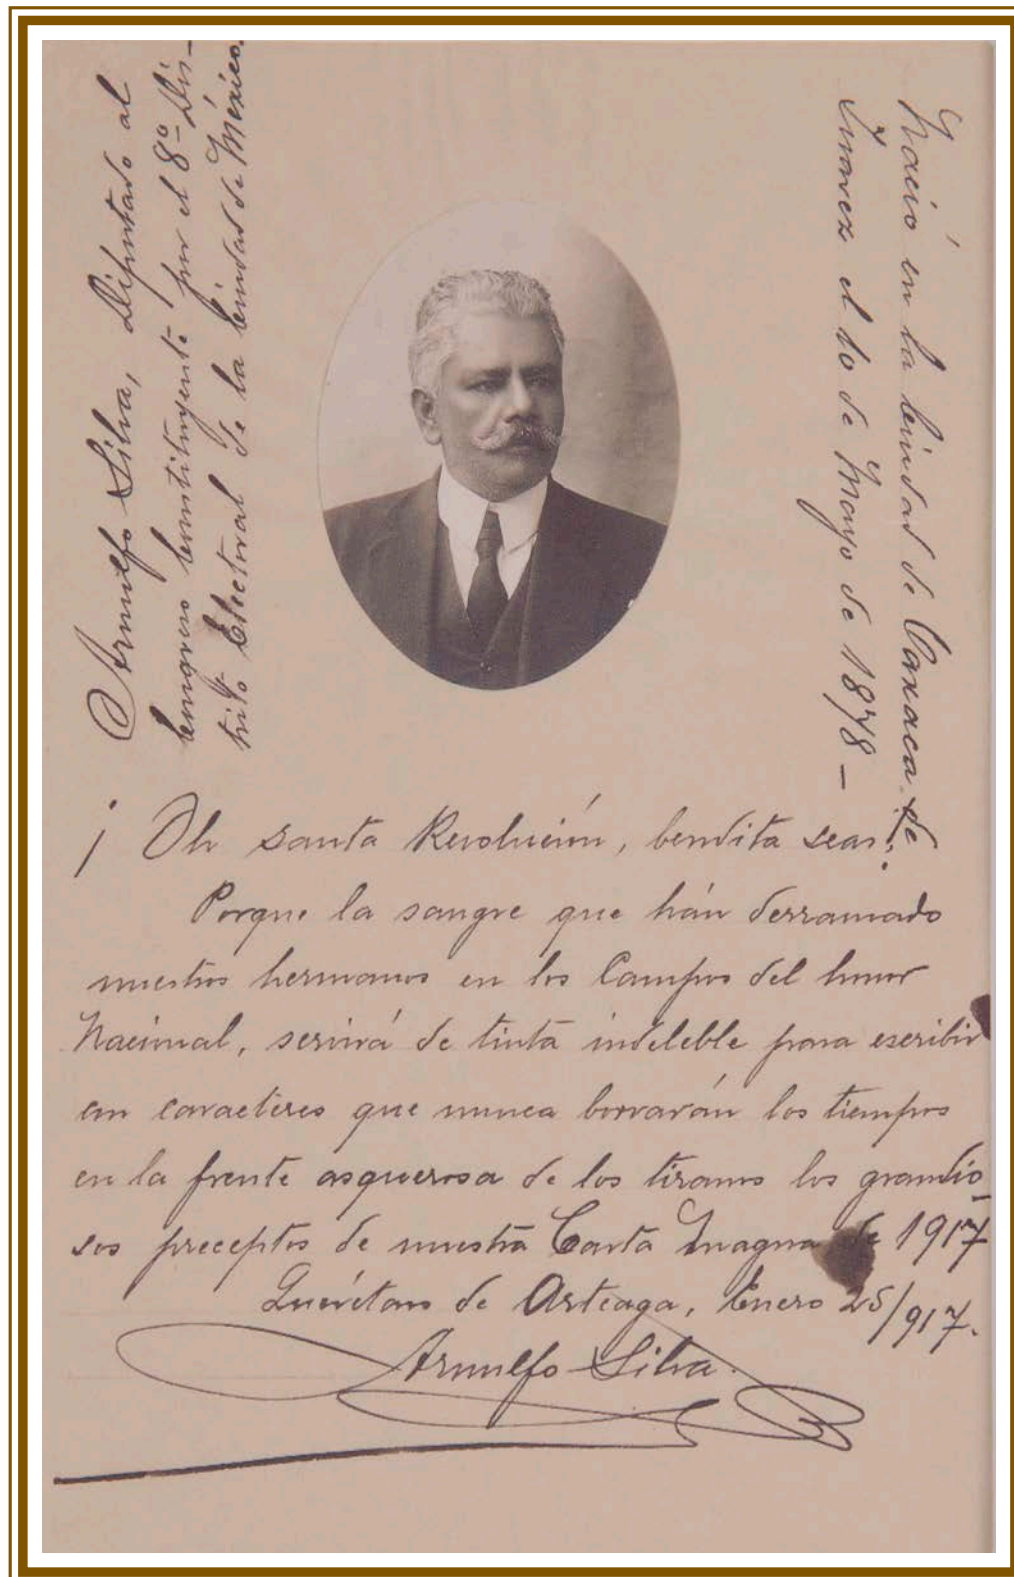 Arnulfo Silva, Diputado al
Congreso Constituyente por el 8º Dis-
trito Electoral de la Ciudad de México.
Nació en la Ciudad de Oaxaca de
Juarez el 10 de Mayo de 1878 —
¡ Oh santa Revolución, bendita seas!
Porque la sangre que hán derramado
nuestros hermanos en los Campos del honor
Nacional, servirá de tinta indeleble para escribir
con caracteres que nunca borrarán los tiempos
en la frente asquerosa de los tiranos los grandio-
sos preceptos de nuestra Carta Magna de 1917
Querétaro de Arteaga, Enero 25/917.
Arnulfo Silva.